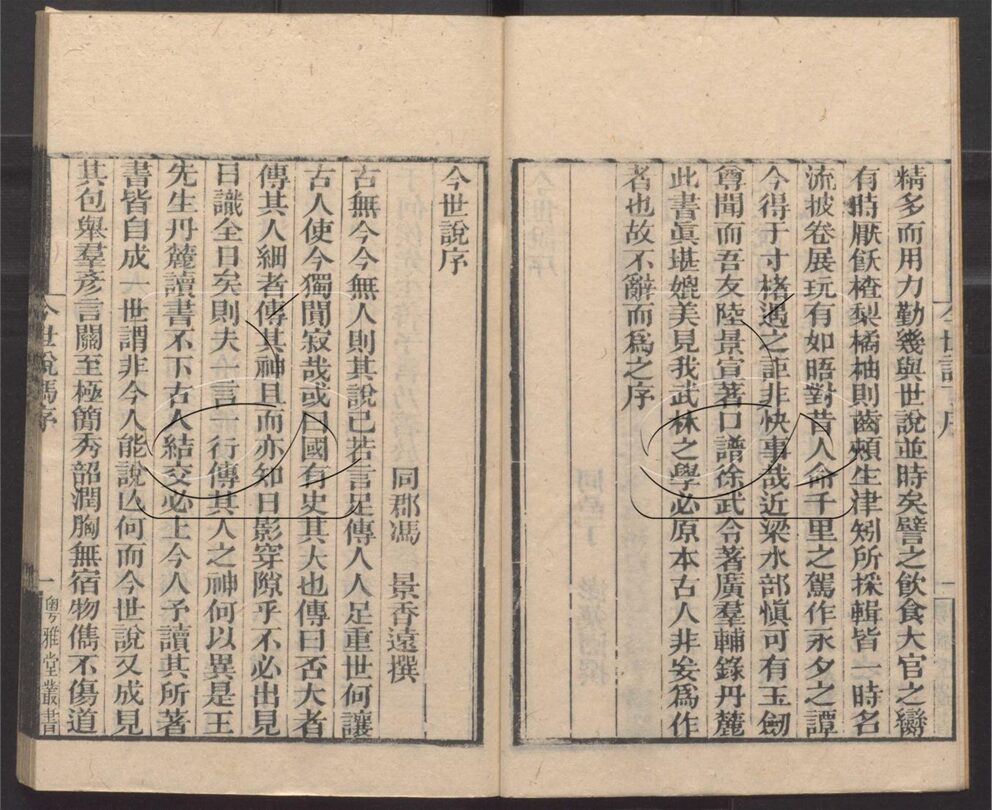 精多而用力勤幾與世說並時矣譬之飲食大官之臠
有時厭飫楂梨橘柚則齒頰生津矧所採輯皆一時名
流披卷展玩有如晤對昔人命千里之駕作永夕之譚
今得于寸楮遇之詎非快事哉近梁水部愼可有玉劒
尊聞而吾友陸景宣著口譜徐武令著廣羣輔錄丹麓
此書眞堪媲美見我武林之學必原本古人非妄爲作
者也故不辭而爲之序
今世說序
同郡馮　景香遠撰
古無今今無人則其說已若言足傳人人足重世何讓
古人使今獨閴寂哉或曰國有史其大也傳曰否大者
傳其人細者傳其神且而亦知日影穿隙乎不必出見
日識全日矣則夫一言一行傳其人之神何以異是王
先生丹麓讀書不下古人結交必上今人予讀其所著
書皆自成一世謂非今人能說亾何而今世說又成見
其包舉羣彥言關至極簡秀韶潤胸無宿物儁不傷道
今世說馮序
一
粵雅堂叢書